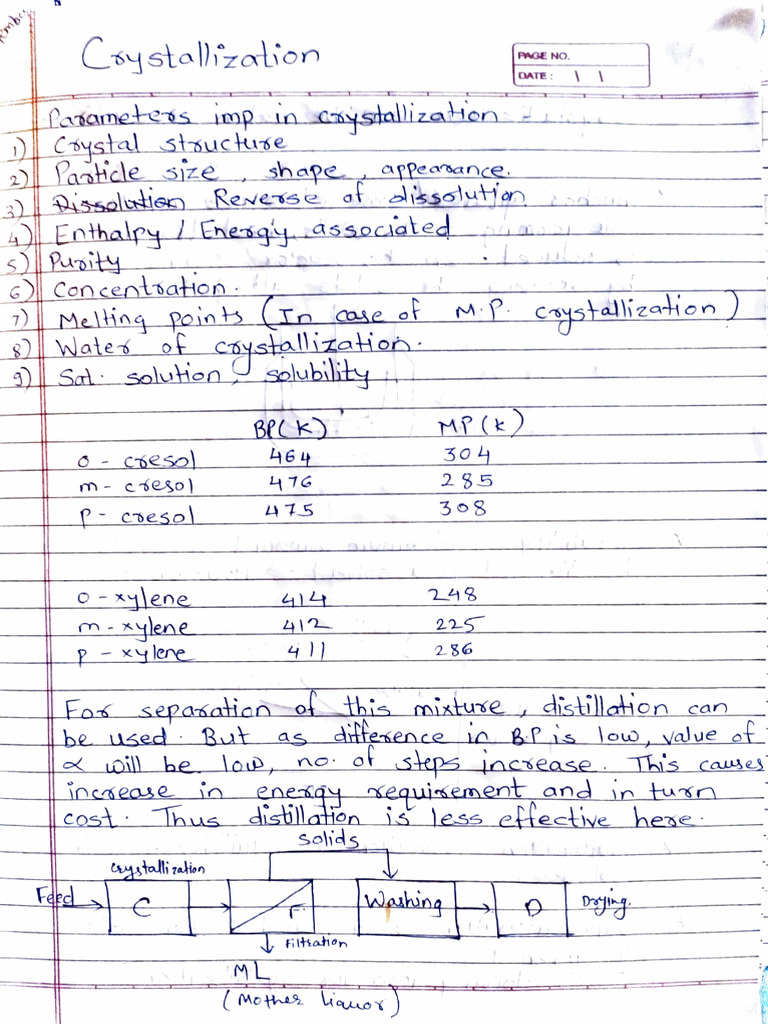 Crystallization
PAGE NO.
DATE: / /
Parameters imp in crystallization -
1) Crystal structure
2) Particle size, shape, appearance.
3) Dissolution Reverse of dissolution
4) Enthalpy / Energy associated
5) Purity
6) Concentration.
7) Melting points (In case of M.P. crystallization)
8) Water of crystallization.
9) Sat. solution, solubility
BP(K) MP(K)
o - cresol 464 304
m - cresol 476 285
p - cresol 475 308
o - xylene 414 248
m - xylene 412 225
p - xylene 411 286
For separation of this mixture, distillation can
be used. But as difference in BP is low, value of
α will be low, no. of steps increase. This causes
increase in energy requirement and in turn
cost. Thus distillation is less effective here.
solids
Crystallization
Feed C F Washing D Drying.
Filtration
ML
(Mother liquor)